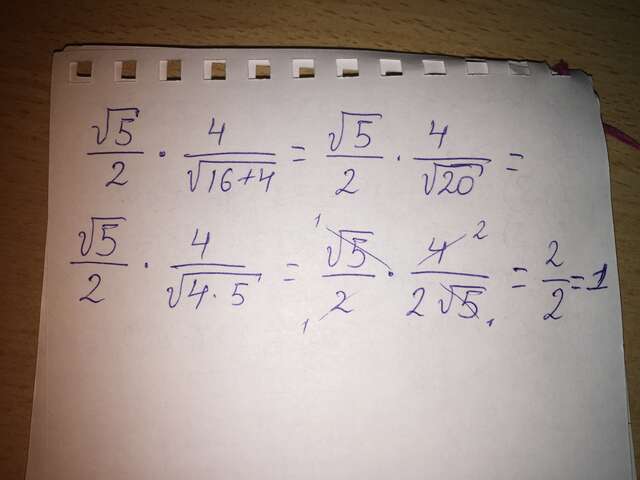 √5/2 · 4/√16+4 = √5/2 · 4/√20 =
√5/2 · 4/√4·5 = √5¹/2₁ · 4²/2√5₁ = 2/2 = 1